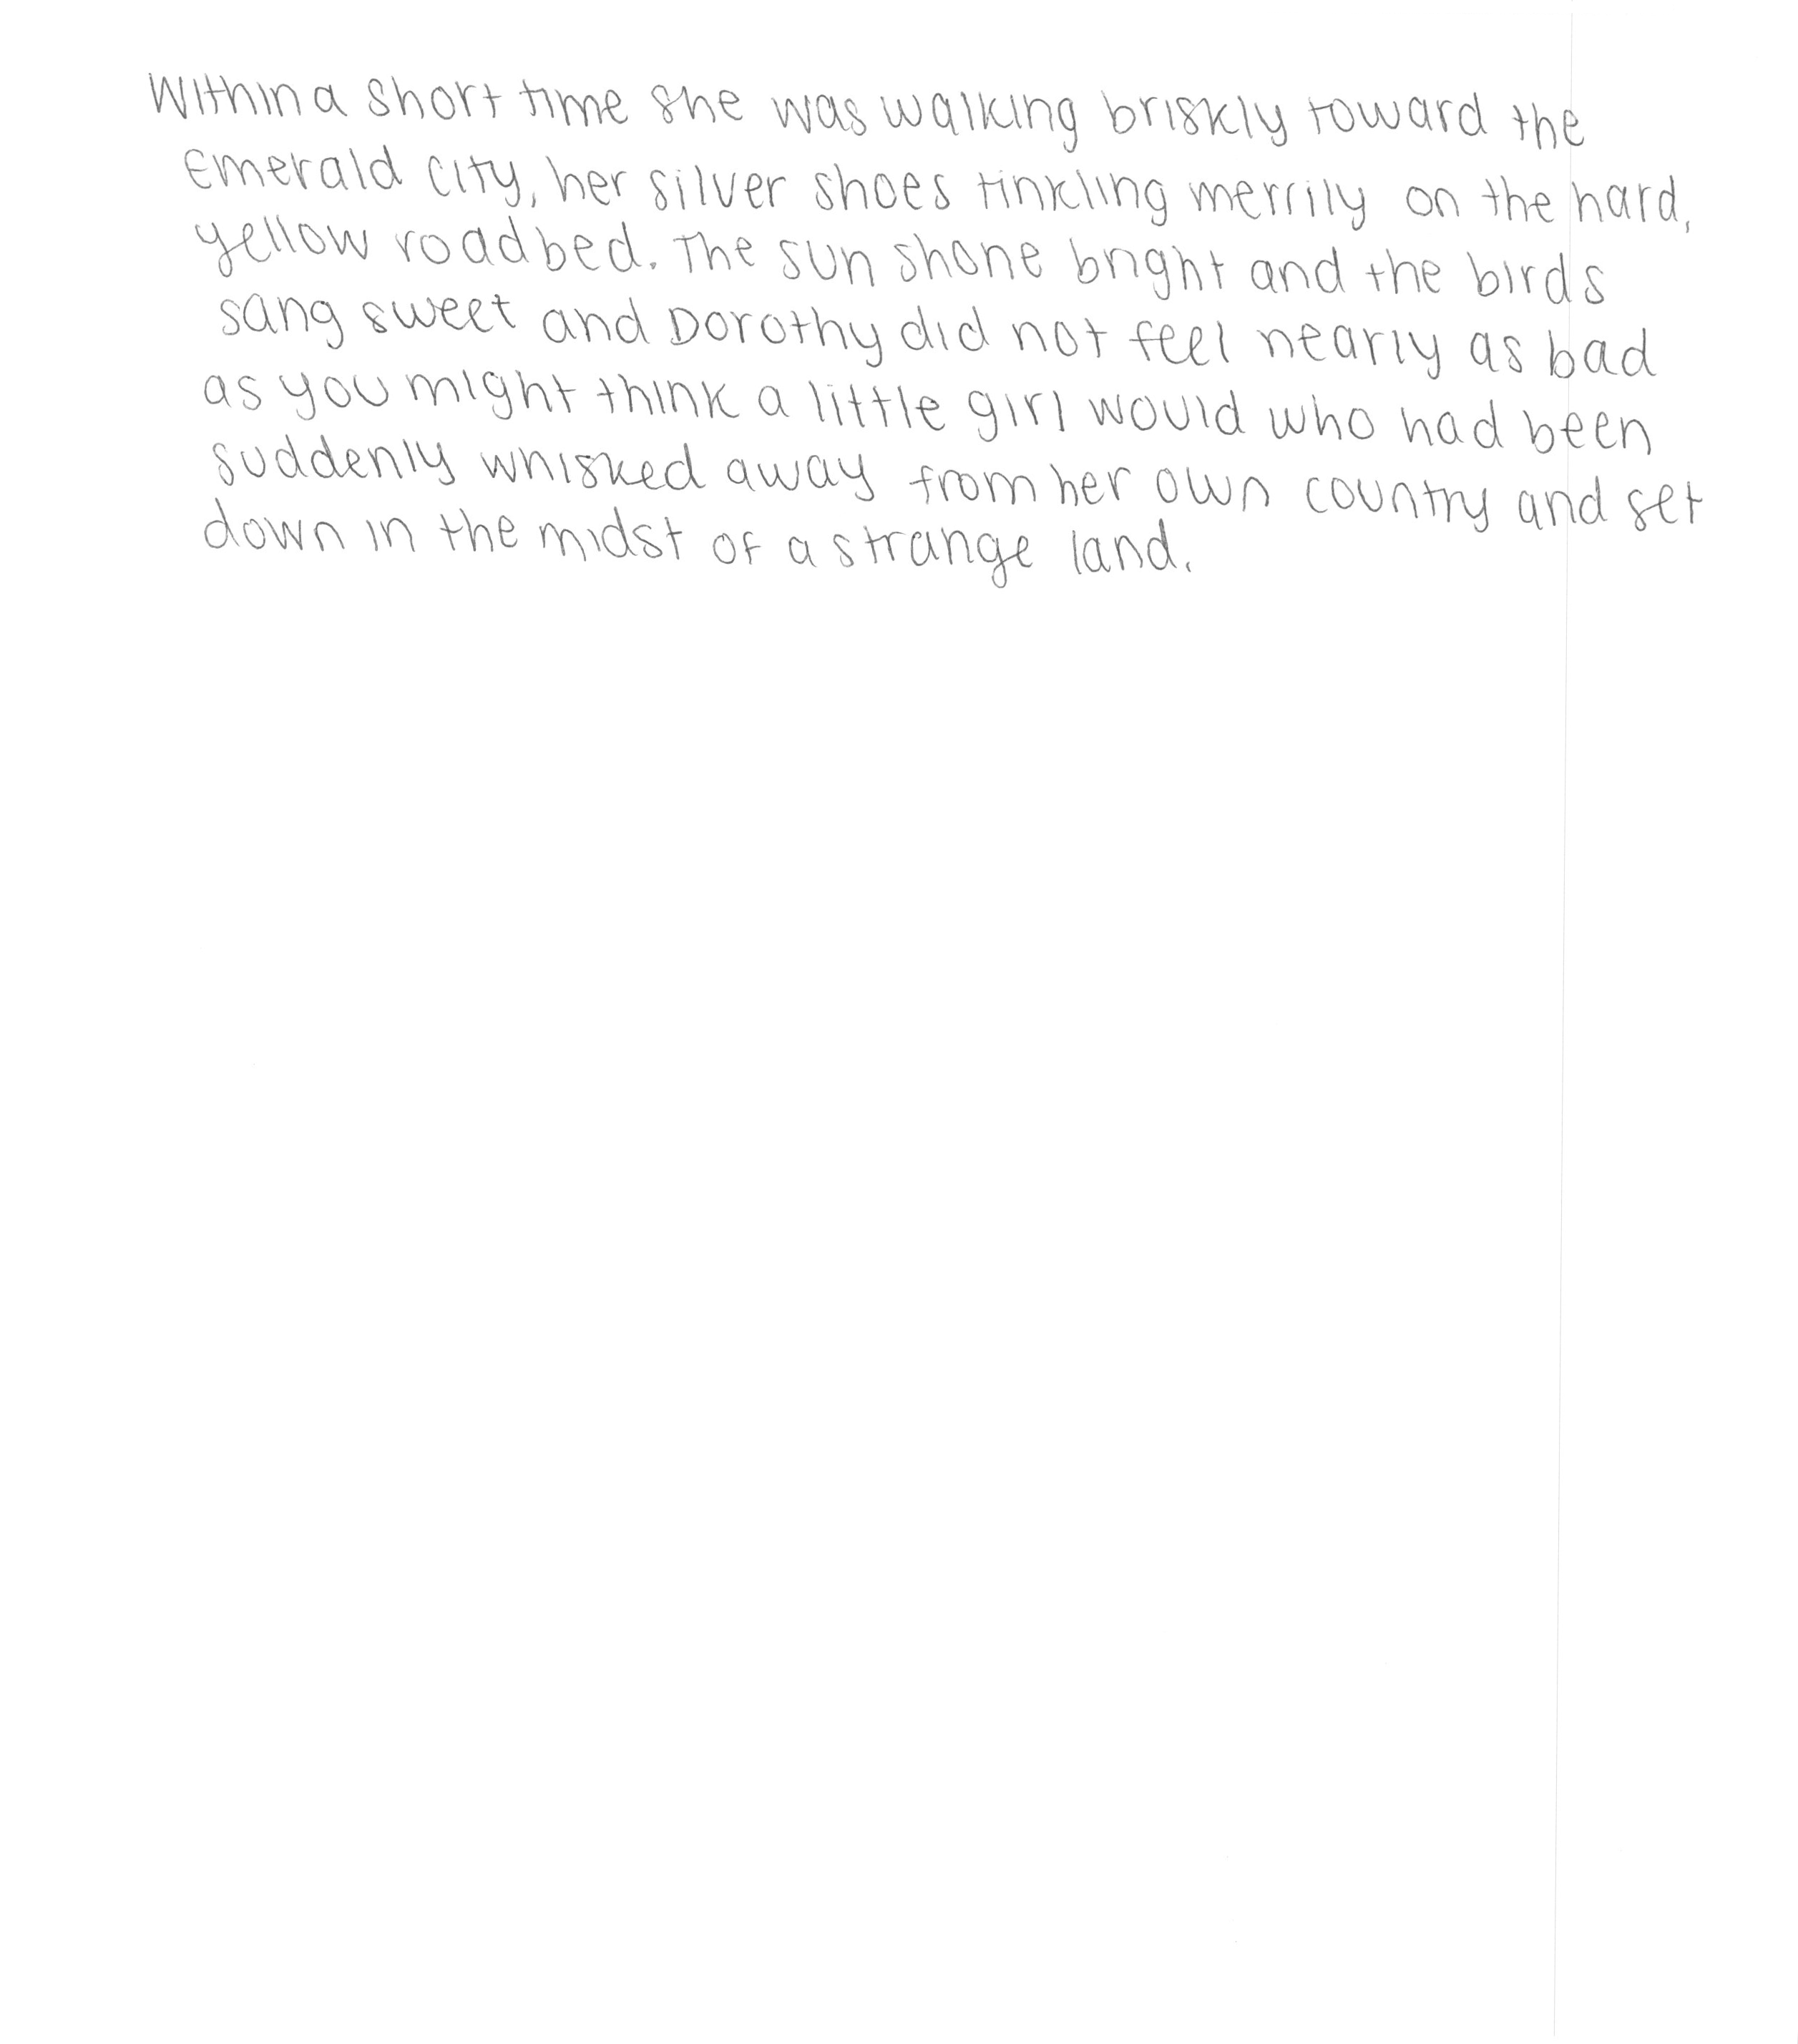 Within a short time she was walking briskly toward the
Emerald City, her silver shoes tinkling merrily on the hard,
yellow roadbed. The sun shone bright and the birds
sang sweet and Dorothy did not feel nearly as bad
as you might think a little girl would who had been
suddenly whisked away from her own country and set
down in the midst of a strange land.